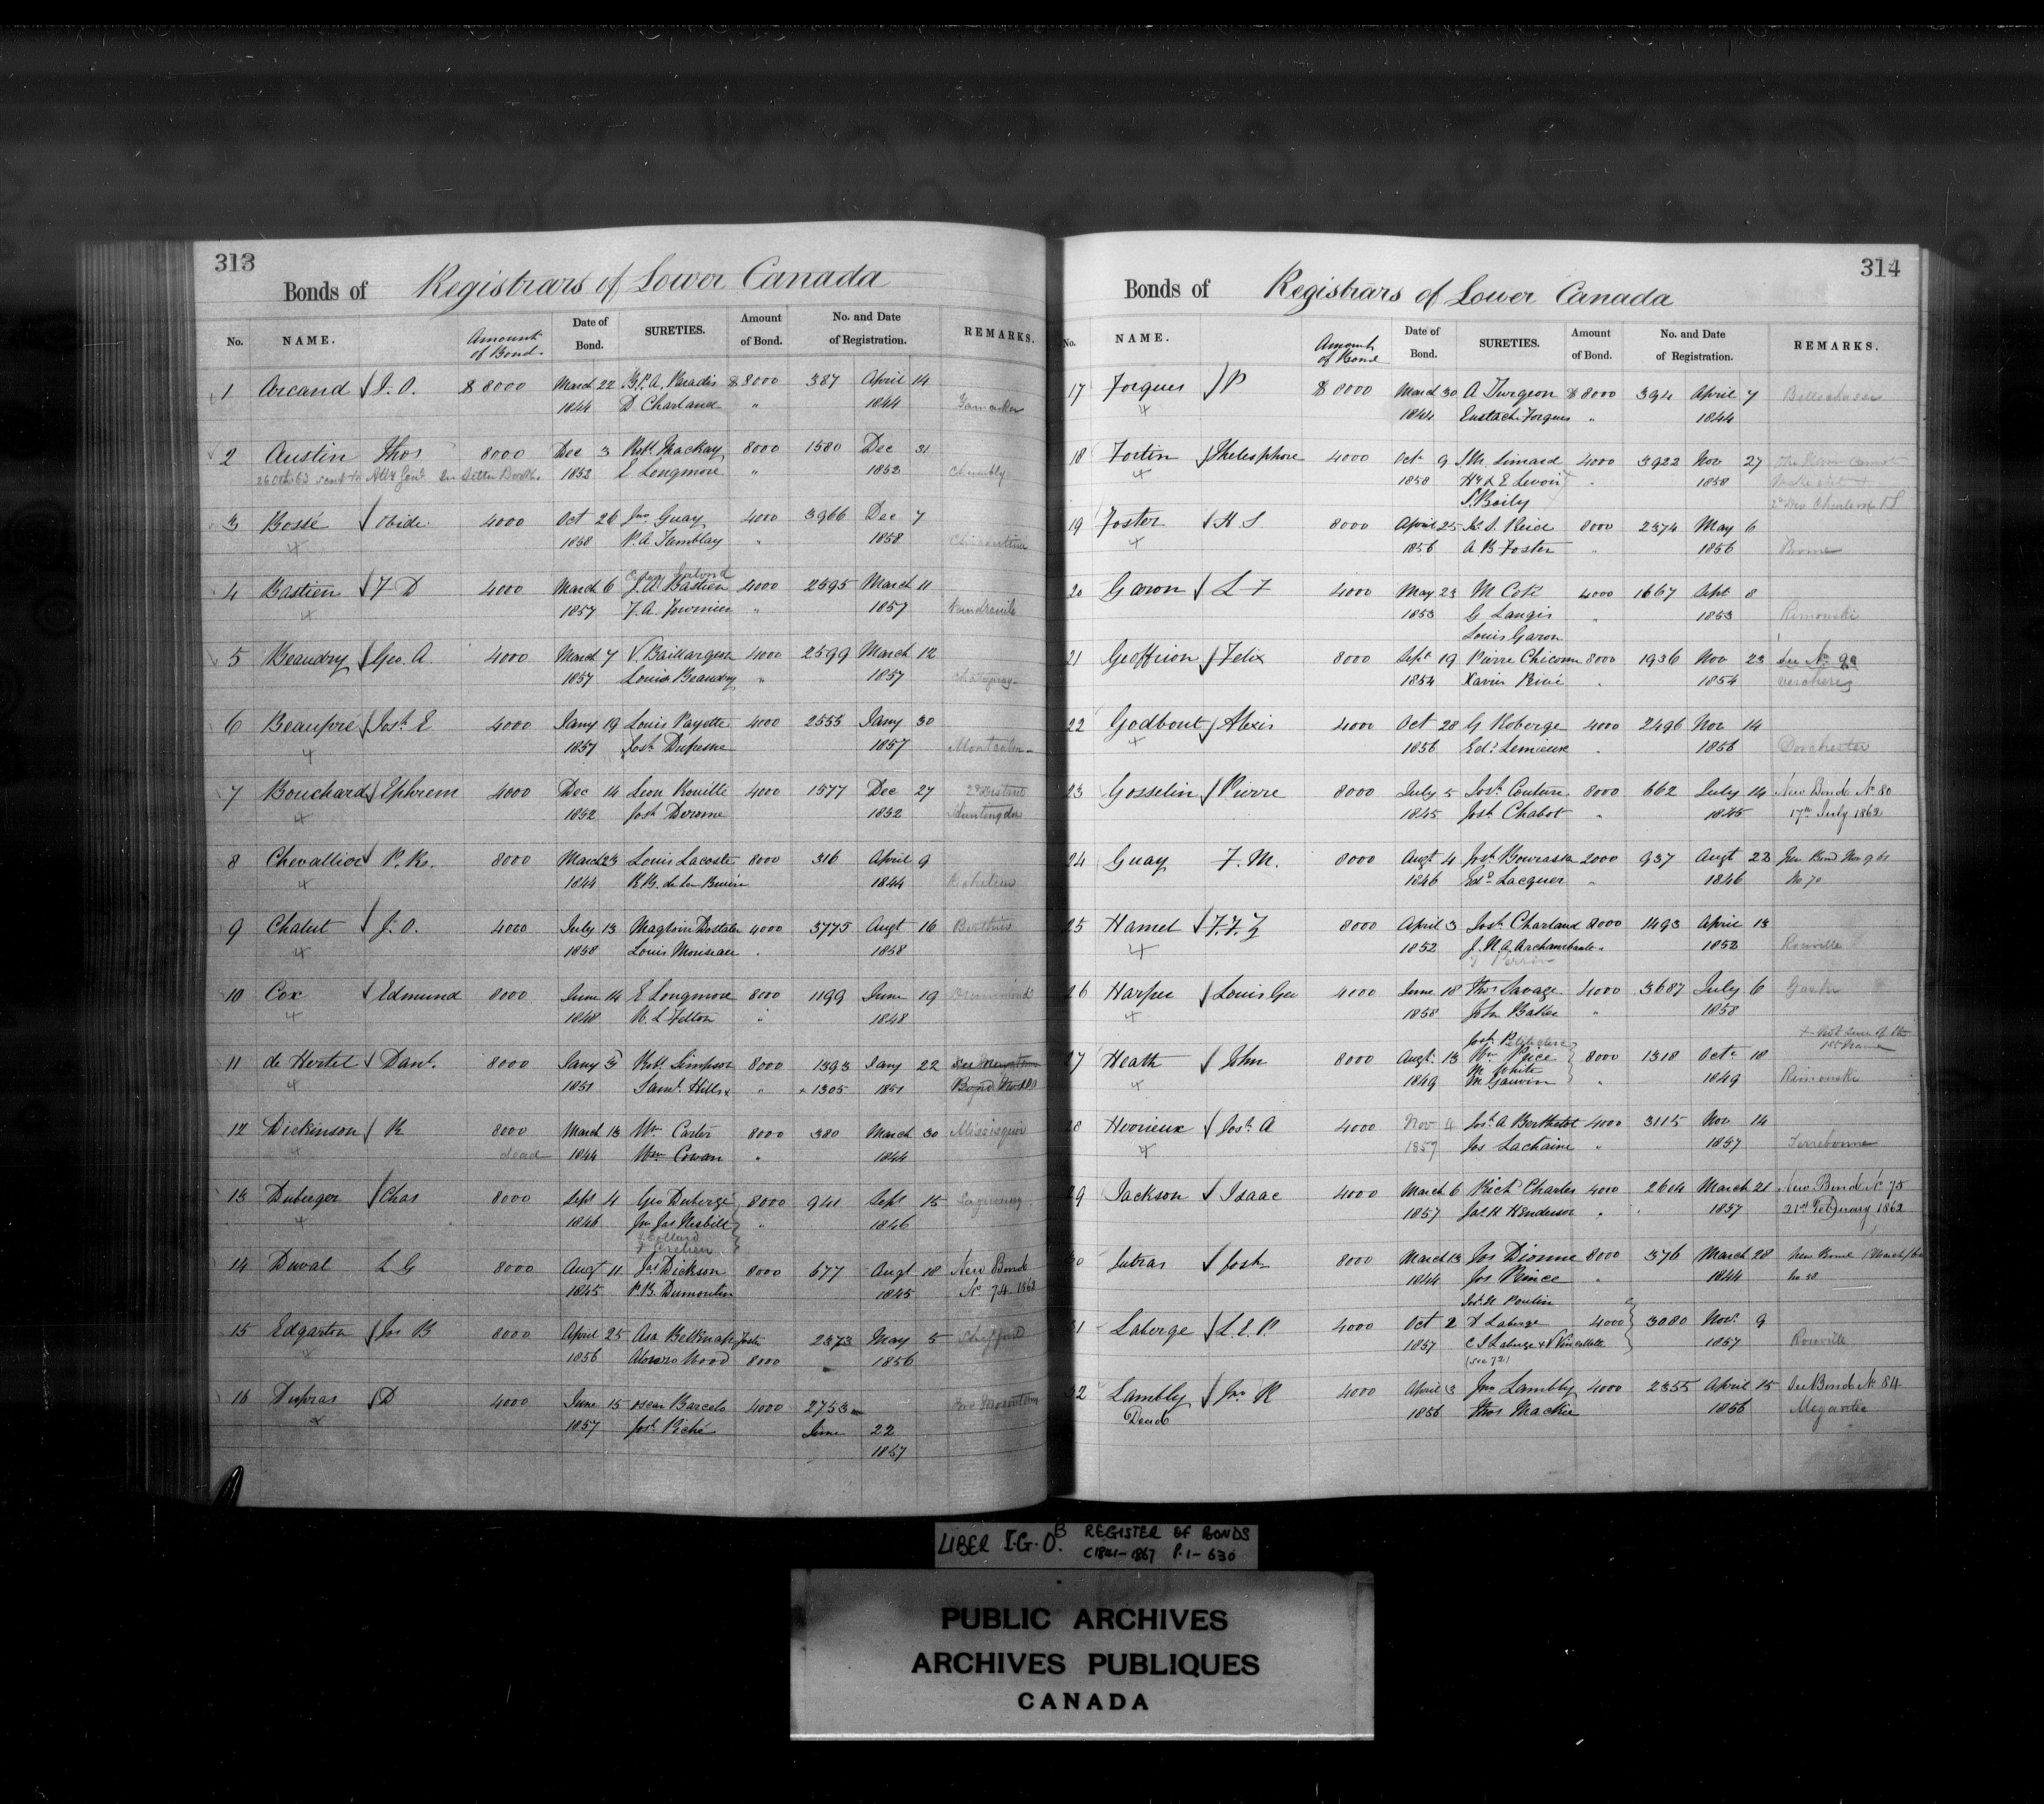 313
Bonds of Registrars of Lower Canada
No. NAME. Amount of Bond. Date of Bond. SURETIES. Amount of Bond. No. and Date of Registration. REMARKS.
1 Arcand J. O. $ 8000 March 22 G. P. A. Paradis $ 8000 387 April 14
1844 D Charland " 1844 Yamaska
2 Austin Thos 8000 Dec 3 Robt. Mackay 8000 1580 Dec 31
sent to Atty Genl. Letter Book. 1852 E Longmore " 1852 Chambly
3 Bossé Ovide 4000 Oct 26 Jno Guay 4000 3966 Dec 7
4 1858 P. A Tremblay " 1858 Chicoutimi
4 Bastien F D 4000 March 6 J. A Bastien 4000 2595 March 11
4 1857 F. A. Fournier " 1857 Vaudreuil
5 Beaudry Geo. A. 4000 March 7 V. Baillargeon 4000 2599 March 12
1857 Louis Beaudry " 1857
6 Beaupré Josh. E 4000 Jany 19 Louis Payette 4000 2555 Jany 30
4 1857 Josh Dufresne 1857 Montcalm
7 Bouchard Ephrem 4000 Dec 14 Leon Rouille 4000 1577 Dec 27 2d District
4 1852 Josh Derome 1852 Huntingdon
8 Chevallier P. Rs. 8000 March 23 Louis Lacoste 8000 316 April 9
4 1844 R B. de la Bruère 1844 Richelieu
9 Chalut J. O. 4000 July 13 Magloire Dostaler 4000 3775 Augt 16 Berthier
4 1858 Louis Mousseau . 1858
10 Cox Edmund 8000 June 14 E Longmore 8000 1199 June 19 Drummond
4 1848 W. L Felton " 1848
11 de Hertel Danl. 8000 Jany 3 Robt. Simpson 8000 1393 Jany 22
4 1851 Saml. Hills " 1305 1851 Bond
12 Dickinson R 8000 March 13 Wm Carter 8000 380 March 30 Missisquoi
4 dead 1844 Wm Cowan " 1844
13 Duberger Chas 8000 Sept 4 Geo Duberge 8000 941 Sept 15 Saguenay
4 1846 Jn Jas Nesbitt " 1846
14 Duval L G 8000 Augt 11 Jas Dickson 8000 677 Augt 18 New Bond
1845 P. B. Dumoulin 1845 No 74 1862
15 Edgarton Jos B 8000 April 25 Asa Belknap Foster 2373 May 5 Shefford
1856 Alonzo Wood 8000 1856
16 Dupras D 4000 June 15 Oscar Barcelo 4000 2753
1857 Josh Piché June 22
1857
314
Bonds of Registrars of Lower Canada
No. NAME. Amount of Bond Date of Bond. SURETIES. Amount of Bond. No. and Date of Registration. REMARKS.
17 Forgues P $ 8000 March 30 A Turgeon $ 8000 394 April 7 Bellechasse
4 1844 Eustach Forgues " 1844
18 Fortin Thelesphore 4000 Oct 9 S. M. Simard 4000 3922 Nov 27
4 1858 Hy & E Lavoie . 1858
S. Boily
19 Foster H S 8000 April 25 Js. S. Reid 8000 2374 May 6
4 1856 A B Foster " 1856 Brome
20 Garon L F 4000 May 23 M Coté 4000 1667 Sept 8
1853 G Langis . 1853 Rimouski
Louis Garon
21 Geoffrion Felix 8000 Sept 19 Pierre Chicoine 8000 1936 Nov 23 See No 99
1854 Xavier Biné . 1854 Vercheres
22 Godbout Alexis 4000 Oct 28 G Roberge 4000 2496 Nov 14
4 1856 Ed. Lemieux . 1856 Dorchester
23 Gosselin Pierre 8000 July 5 Josh Couture 8000 662 July 14 New Bond No 80
1845 Josh Chabot " 1845 17th July 1862
24 Guay F. M. 8000 Augt 4 Josh Bourassa 2000 937 Augt 22
1846 Edd Lacquer " 1846 No 70
25 Hamel F. F. Z 8000 April 3 Josh Charland 8000 1493 April 13
4 1852 J. N. A Archambault " 1852 Rouville
F Perrin
26 Harper Louis Geo 4000 June 18 Thos Savage 4000 3687 July 6 Gaspé
4 1858 John Baker " 1858
27 Heath John 8000 Augt 13 Wm Price 8000 1318 Octr 18
4 1849 M White " 1849 Rimouski
M Gauvin
28 Hervieux Josh A 4000 Nov 4 Josh A Berthelot 4000 3115 Nov 14
4 1857 Jos Lachaine " 1857 Terrebonne
29 Jackson Isaac 4000 March 6 Richd Charles 4000 2614 March 21 New Bond No 75
1857 Jas H Henderson " 1857 21st February 1862
30 Jutras Josh 8000 March 13 Jos Dionne 8000 376 March 28
1844 Jos Prince " 1844
Josh N Poulin
31 Laberge L. E. P. 4000 Oct 2 D Laberge 4000 3080 Nov. 9
1857 C I Laberge & 1857 Rouville
(See 72)
32 Lambly Jno R 4000 April 3 Jno Lambly 4000 2355 April 15 See Bond No 84
Dead 1856 Thos Mackie 1856 Megantic
LIBER I.G.O.B REGISTER OF BONDS
C1841-1867 P.1-630
PUBLIC ARCHIVES
ARCHIVES PUBLIQUES
CANADA